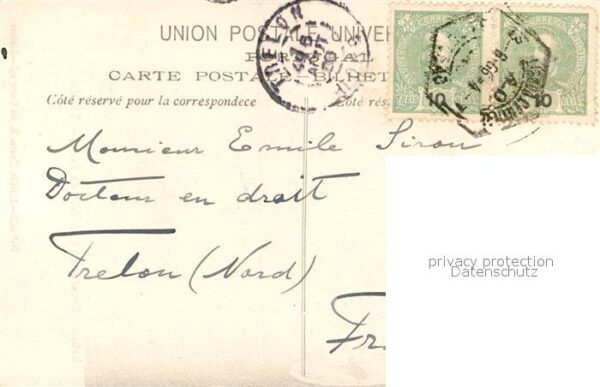 UNION POSTALE UNIVER
PORTUGAL
CARTE POSTA BILHET
Côté réservé pour la correspondece
Côté rés
TRELON
10
10
Monsieur Emile Sirou
Docteur en droit
Trelon (Nord)
Fra
privacy protection
Datenschutz